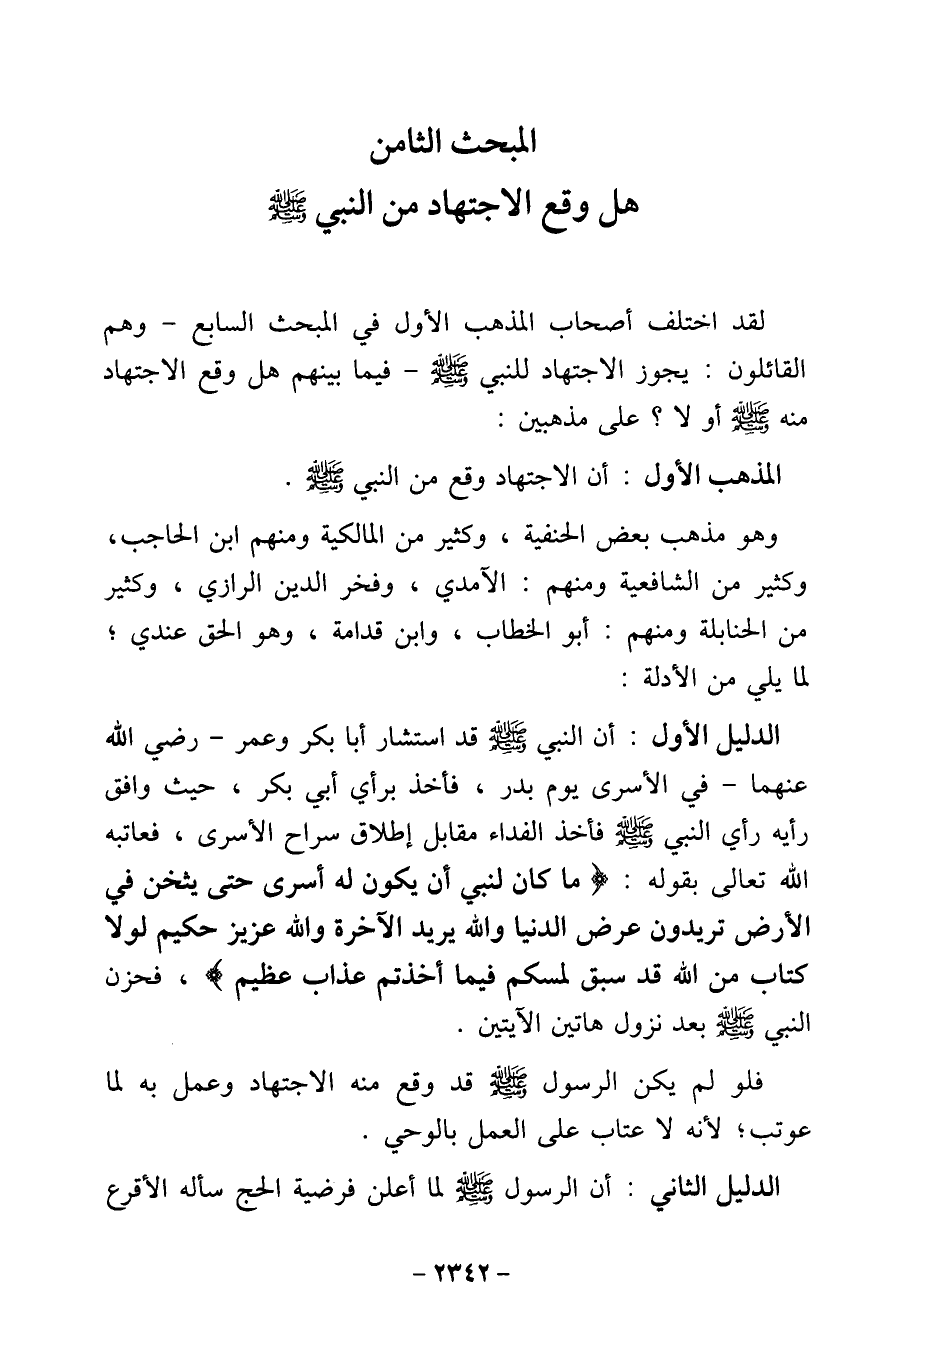 المبحث الثامن
هل وقع الاجتهاد من النبي ﷺ
لقد اختلف أصحاب المذهب الأول في المبحث السابع – وهم
القائلون : يجوز الاجتهاد للنبي ﷺ – فيما بينهم هل وقع الاجتهاد
منه ﷺ أو لا ؟ على مذهبين :
المذهب الأول : أن الاجتهاد وقع من النبي ﷺ .
وهو مذهب بعض الحنفية ، وكثير من المالكية ومنهم ابن الحاجب،
وكثير من الشافعية ومنهم : الآمدي ، وفخر الدين الرازي ، وكثير
من الحنابلة ومنهم : أبو الخطاب ، وابن قدامة ، وهو الحق عندي ؛
لما يلي من الأدلة :
الدليل الأول : أن النبي ﷺ قد استشار أبا بكر وعمر – رضي الله
عنهما – في الأسرى يوم بدر ، فأخذ برأي أبي بكر ، حيث وافق
رأيه رأي النبي ﷺ فأخذ الفداء مقابل إطلاق سراح الأسرى ، فعاتبه
الله تعالى بقوله : ﴿ ما كان لنبي أن يكون له أسرى حتى يثخن في
الأرض تريدون عرض الدنيا والله يريد الآخرة والله عزيز حكيم لولا
كتاب من الله قد سبق لمسكم فيما أخذتم عذاب عظيم ﴾ ، فحزن
النبي ﷺ بعد نزول هاتين الآيتين .
فلو لم يكن الرسول ﷺ قد وقع منه الاجتهاد وعمل به لما
عوتب؛ لأنه لا عتاب على العمل بالوحي .
الدليل الثاني : أن الرسول ﷺ لما أعلن فرضية الحج سأله الأقرع
– ٢٣٤٢ –